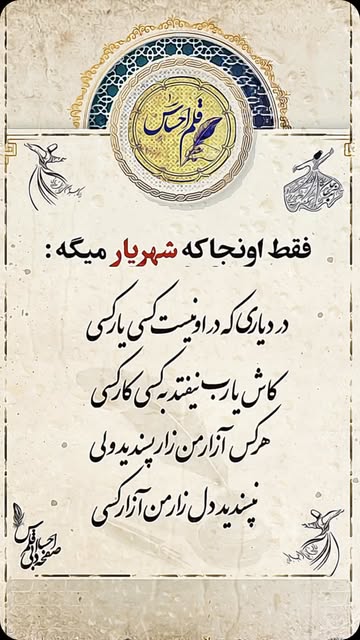 قلم احساس
فقط اونجا که شهریار میگه :
در دیاری که در او نیست کسی یار کسی
کاش یارب نیفتد به کسی کار کسی
هرکس آزار من زار پسندید ولی
نپسندید دل زار من آزار کسی